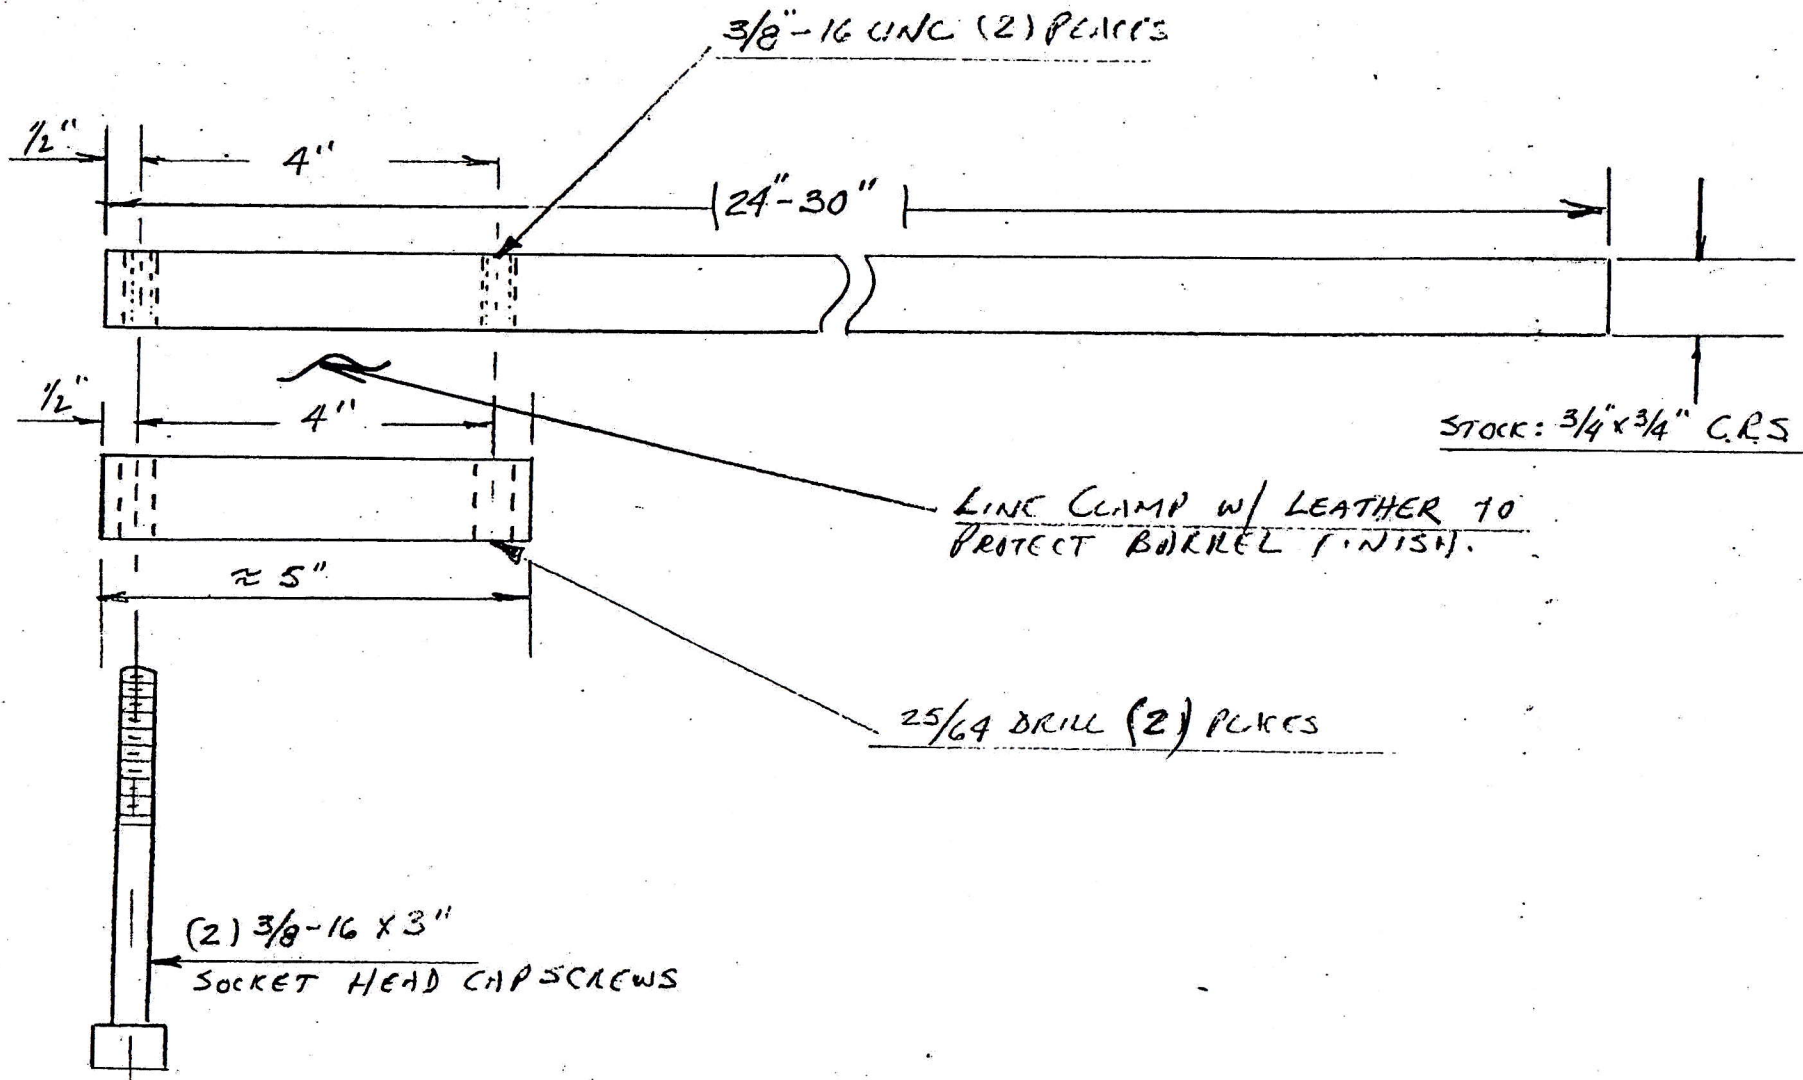 3/8"-16 UNC (2) PLACES
1/2"
4"
24"-30"
1/2"
4"
STOCK: 3/4" x 3/4" C.R.S.
LINE CLAMP W/ LEATHER TO
PROTECT BARREL FINISH.
≈ 5"
25/64 DRILL (2) PLACES
(2) 3/8-16 X 3"
SOCKET HEAD CAPSCREWS